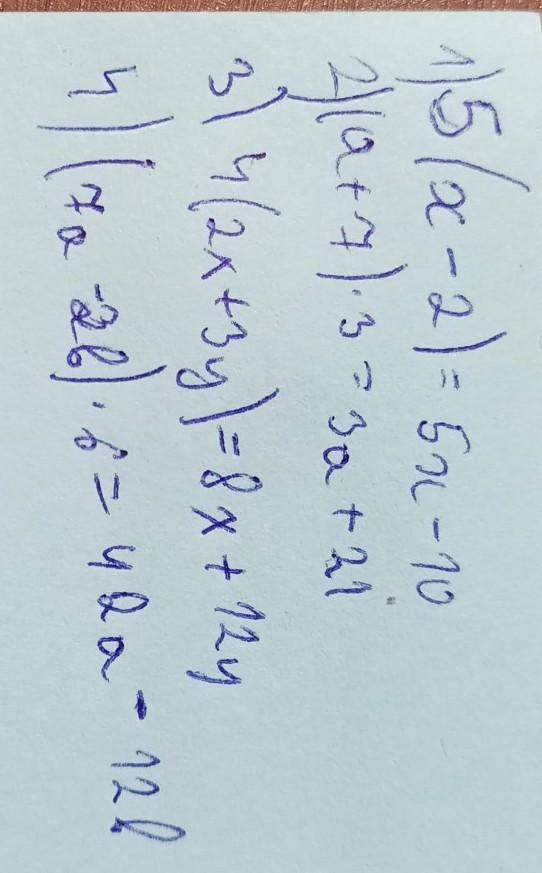 1) 5(x-2)=5x-10
2) (a+7)·3=3a+21
3) 4(2x+3y)=8x+12y
4) (7a-2b)·6=42a-12b